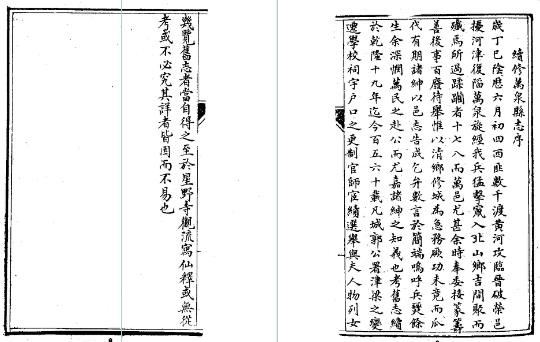 續修萬泉縣志序
歲丁巳陰曆六月初四西匪數千渡黃河攻臨晉破榮邑
擾河津復陷萬泉旋經我兵猛擊竄入北山鄉吉間聚而
殲焉所過蹂躪者十七八而萬邑尤甚余時奉委接篆籌
善後事百廢待舉惟以清鄉修城為急務厥功未竟而瓜
代有期諸紳以邑志告成乞弁數言於簡端嗚呼兵燹餘
生余深憫萬民之赴公而尤嘉諸紳之知義也考舊志續
於乾隆十九年迄今百五六十載凡城郭公署津梁之變
遷學校祠宇戶口之更制官師宦績選舉與夫人物列女
幾覽舊志者當自得之至於星野寺觀流寓仙釋或無從
考或不必究其詳者皆因而不易也